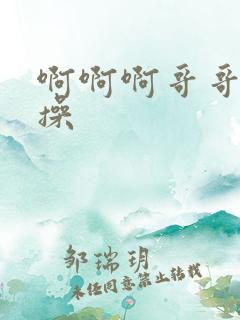 啊啊啊哥哥
操
邹瑞玥
未经同意禁止转载